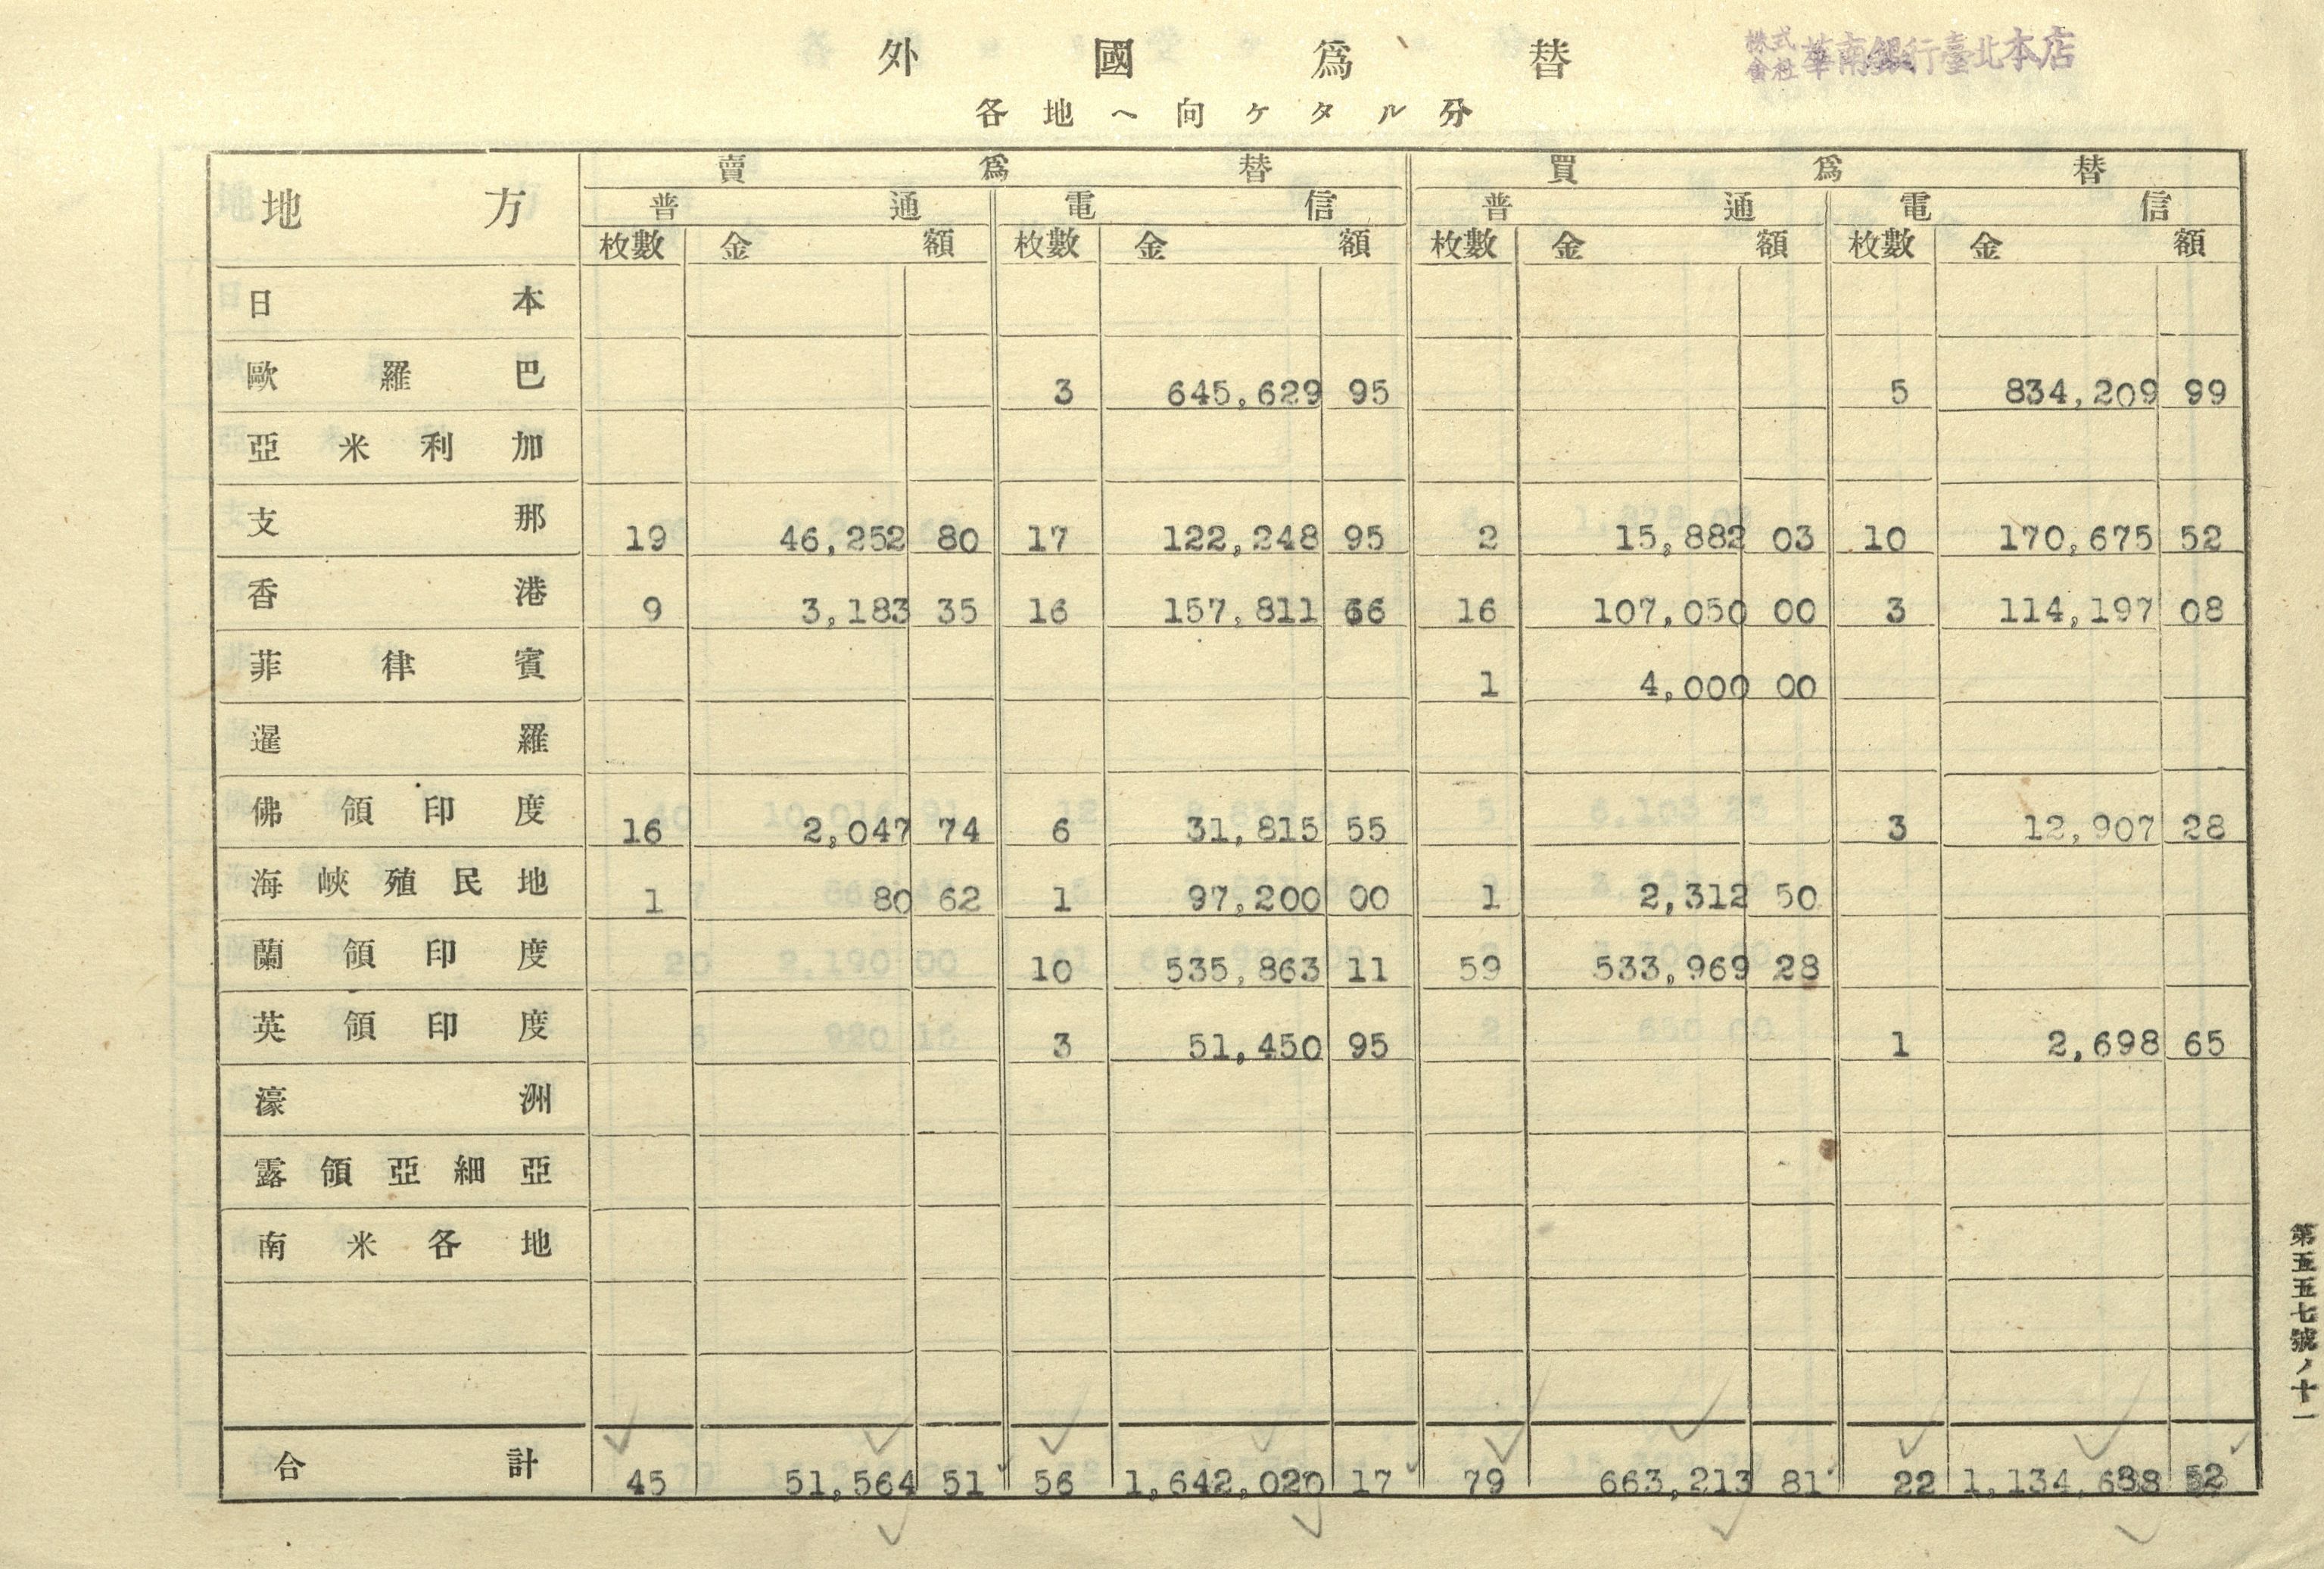 外國爲替
株式會社華南銀行臺北本店
各地ヘ向ケタル分
地方 賣爲替 買爲替
普通 電信 普通 電信
枚數 金額 枚數 金額 枚數 金額 枚數 金額
日本
歐羅巴 3 645,629 95 5 834,209 99
亞米利加
支那 19 46,252 80 17 122,248 95 2 15,882 03 10 170,675 52
香港 9 3,183 35 16 157,811 66 16 107,050 00 3 114,197 08
菲律賓 1 4,000 00
暹羅
佛領印度 16 2,047 74 6 31,815 55 3 12,907 28
海峽殖民地 1 80 62 1 97,200 00 1 2,312 50
蘭領印度 10 535,863 11 59 533,969 28
英領印度 3 51,450 95 1 2,698 65
濠洲
露領亞細亞
南米各地
合計 45 51,564 51 56 1,642,020 17 79 663,213 81 22 1,134,688 52
第五五七號ノ十一